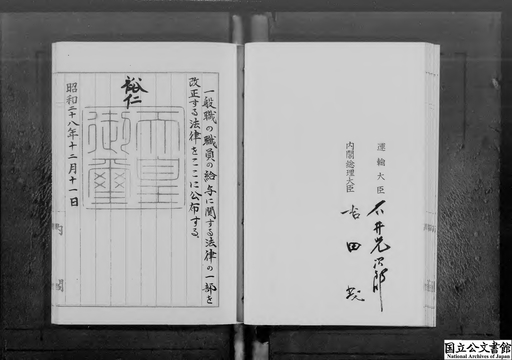 運輸大臣 石井光次郎
内閣総理大臣 吉田茂
一般職の職員の給与に関する法律の一部を
改正する法律をここに公布する。
裕仁
天皇
御璽
昭和二十八年十二月十一日
国立公文書館
National Archives of Japan